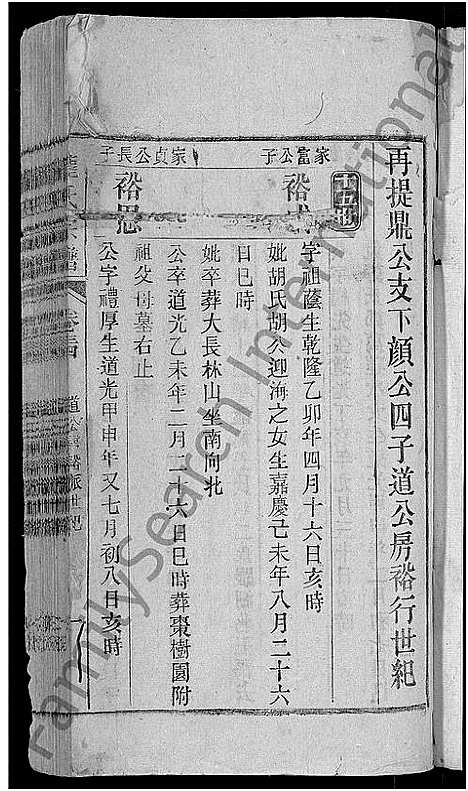 再提鼎公支下顔公四子道公房裕行世紀
十五世
家富公子
裕
字祖蔭生乾隆乙卯年四月十六日亥時
妣胡氏胡公迎海之女生嘉慶己未年八月二十六
日巳時
妣卒葬大長林山坐南向北
公卒道光乙未年二月二十六日巳時葬棗樹園附
祖父母墓右止
家貞公長子
裕恩
公字禮厚生道光甲申年又七月初八日亥時
卷
道公房裕派世紀
FamilySearch International